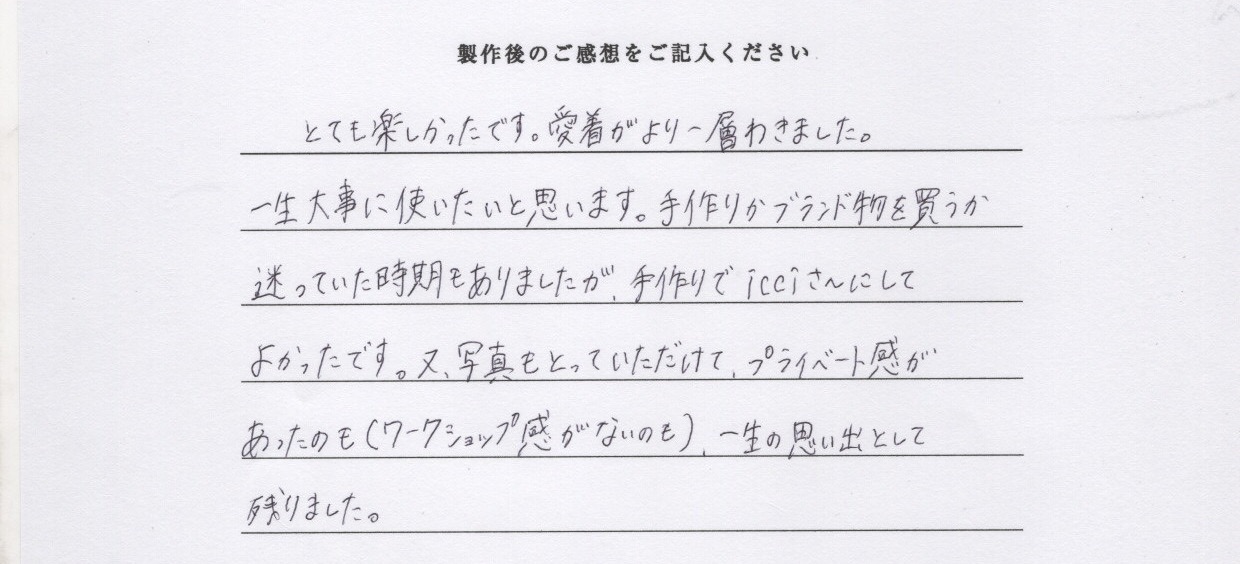 製作後のご感想をご記入ください
とても楽しかったです。愛着がより一層わきました。
一生大事に使いたいと思います。手作りかブランド物を買うか
迷っていた時期もありましたが、手作りでicciさんにして
よかったです。又、写真もとっていただけて、プライベート感が
あったのも(ワークショップ感がないのも)、一生の思い出として
残りました。